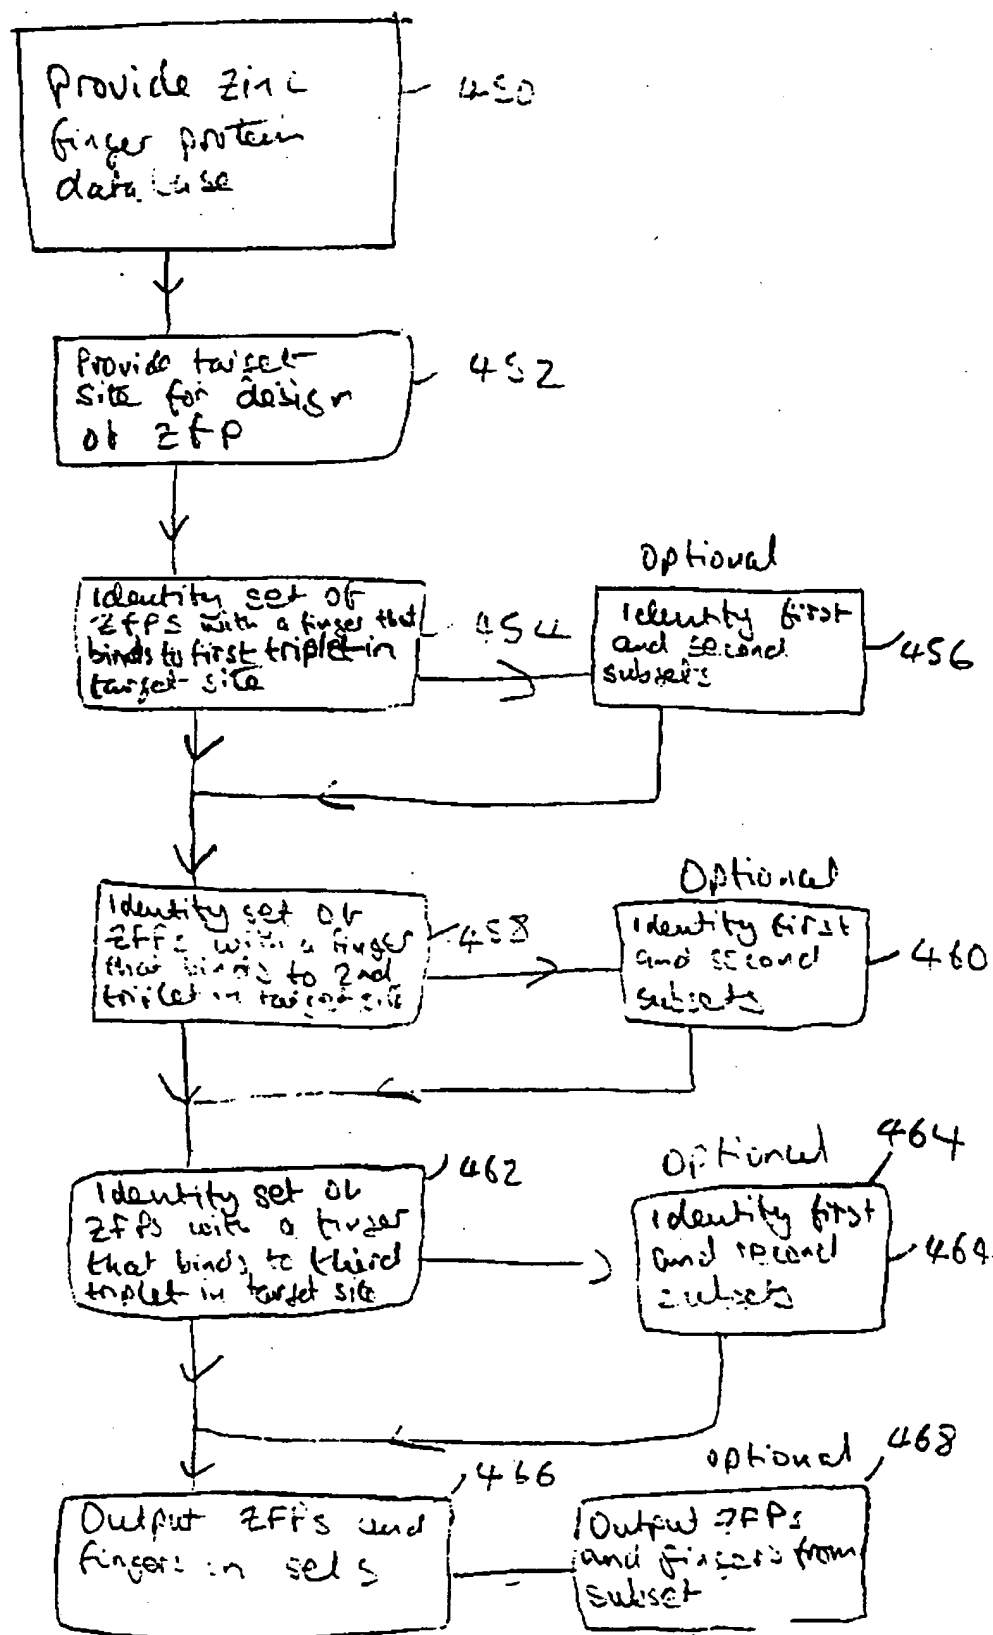 Provide zinc
finger protein
database
450
Provide target
site for design
of ZFP
452
Identify set of
ZFPs with a finger that
binds to first triplet in
target site
454
Optional
Identify first
and second
subsets
456
Identify set of
ZFPs with a finger
that binds to 2nd
triplet in target site
458
Optional
Identify first
and second
subsets
460
Identify set of
ZFPs with a finger
that binds to third
triplet in target site
462
Optional
464
Identify first
and second
subsets
464
Output ZFPs and
fingers in sets
466
optional
468
Output ZFPs
and fingers from
subset